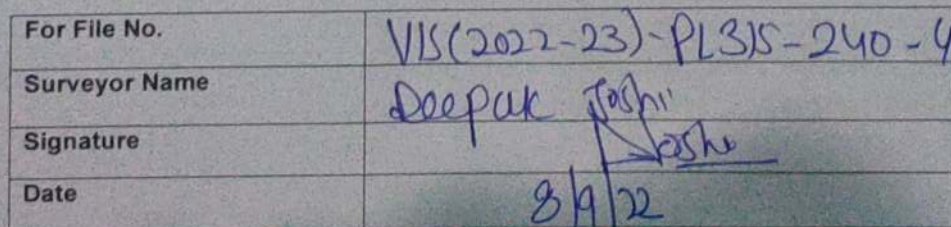 For File No. VIS(2022-23)-PL315-240-4
Surveyor Name Deepak Joshi
Signature Joshi
Date 8/9/22